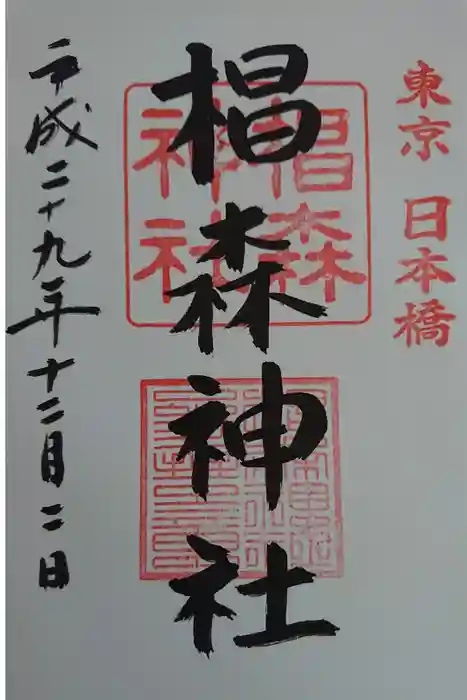 東京 日本橋
椙森神社
椙森神社
平成二十九年十二月二日